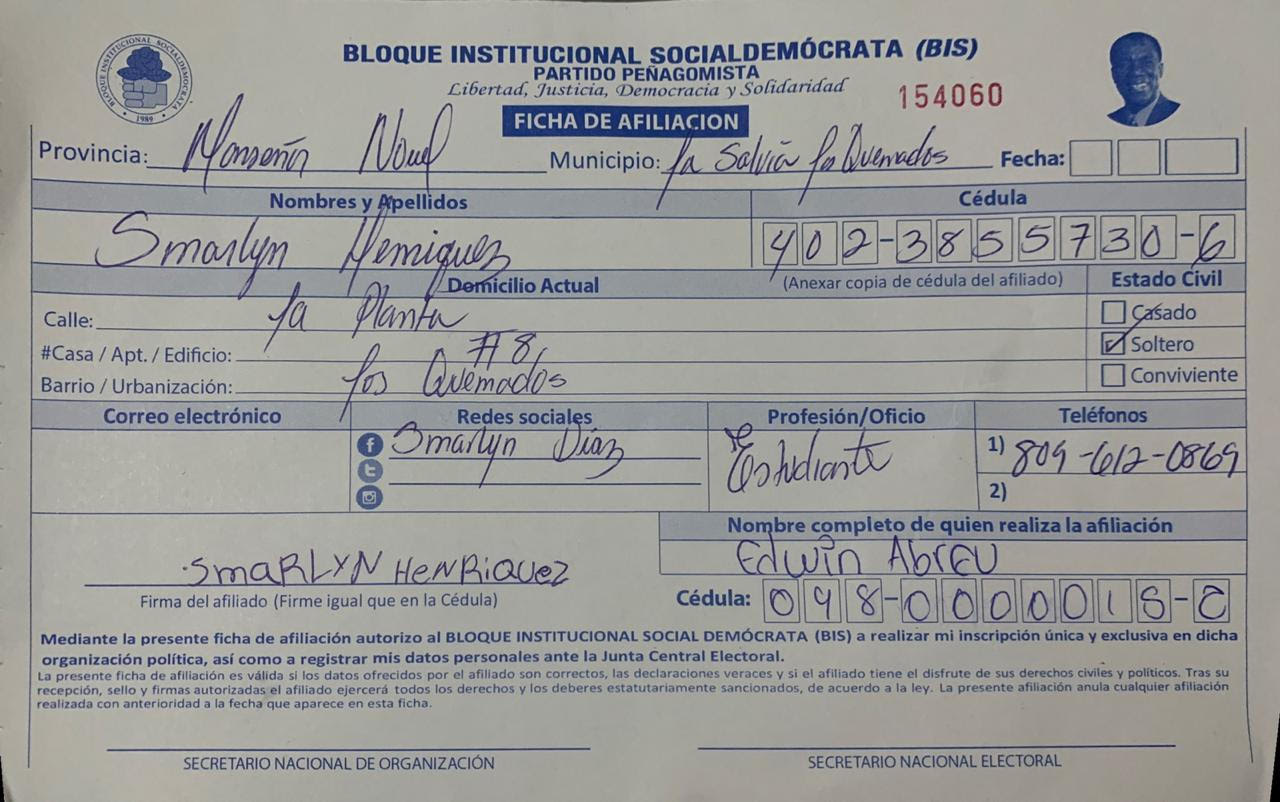 BLOQUE INSTITUCIONAL SOCIALDEMÓCRATA (BIS)
PARTIDO PEÑAGOMISTA
Libertad, Justicia, Democracia y Solidaridad
BLOQUE INSTITUCIONAL SOCIALDEMOCRATA
1989
154060
FICHA DE AFILIACION
Provincia: Monseñor Nouel Municipio: La Salvia Los Quemados Fecha:
Nombres y Apellidos Cédula
Smarlyn Henriquez 402-3855730-6
Domicilio Actual (Anexar copia de cédula del afiliado) Estado Civil
Calle: La Planta Casado
#Casa / Apt. / Edificio: #8, Soltero
Barrio / Urbanización: Los Quemados Conviviente
Correo electrónico Redes sociales Profesión/Oficio Teléfonos
Smarlyn Díaz Estudiante 1) 809-612-0869
2)
Nombre completo de quien realiza la afiliación
Edwin Abreu
SmaRLYN HenRiquez
Firma del afiliado (Firme igual que en la Cédula) Cédula:
Mediante la presente ficha de afiliación autorizo al BLOQUE INSTITUCIONAL SOCIAL DEMÓCRATA (BIS) a realizar mi inscripción única y exclusiva en dicha
organización política, así como a registrar mis datos personales ante la Junta Central Electoral.
La presente ficha de afiliación es válida si los datos ofrecidos por el afiliado son correctos, las declaraciones veraces y si el afiliado tiene el disfrute de sus derechos civiles y políticos. Tras su
recepción, sello y firmas autorizadas el afiliado ejercerá todos los derechos y los deberes estatutariamente sancionados, de acuerdo a la ley. La presente afiliación anula cualquier afiliación
realizada con anterioridad a la fecha que aparece en esta ficha.
SECRETARIO NACIONAL DE ORGANIZACIÓN SECRETARIO NACIONAL ELECTORAL